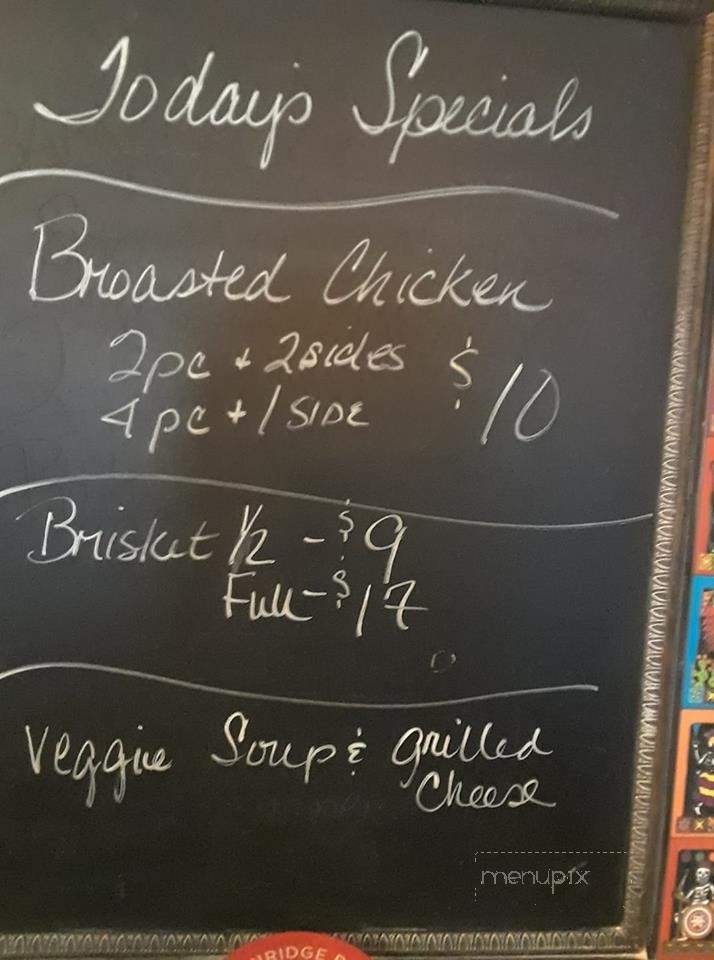 Today's Specials
Broasted Chicken
2pc + 2 sides $10
4pc + 1 SIDE
Brisket 1/2 - $9
Full - $17
Veggie Soup & grilled
Cheese
menupix